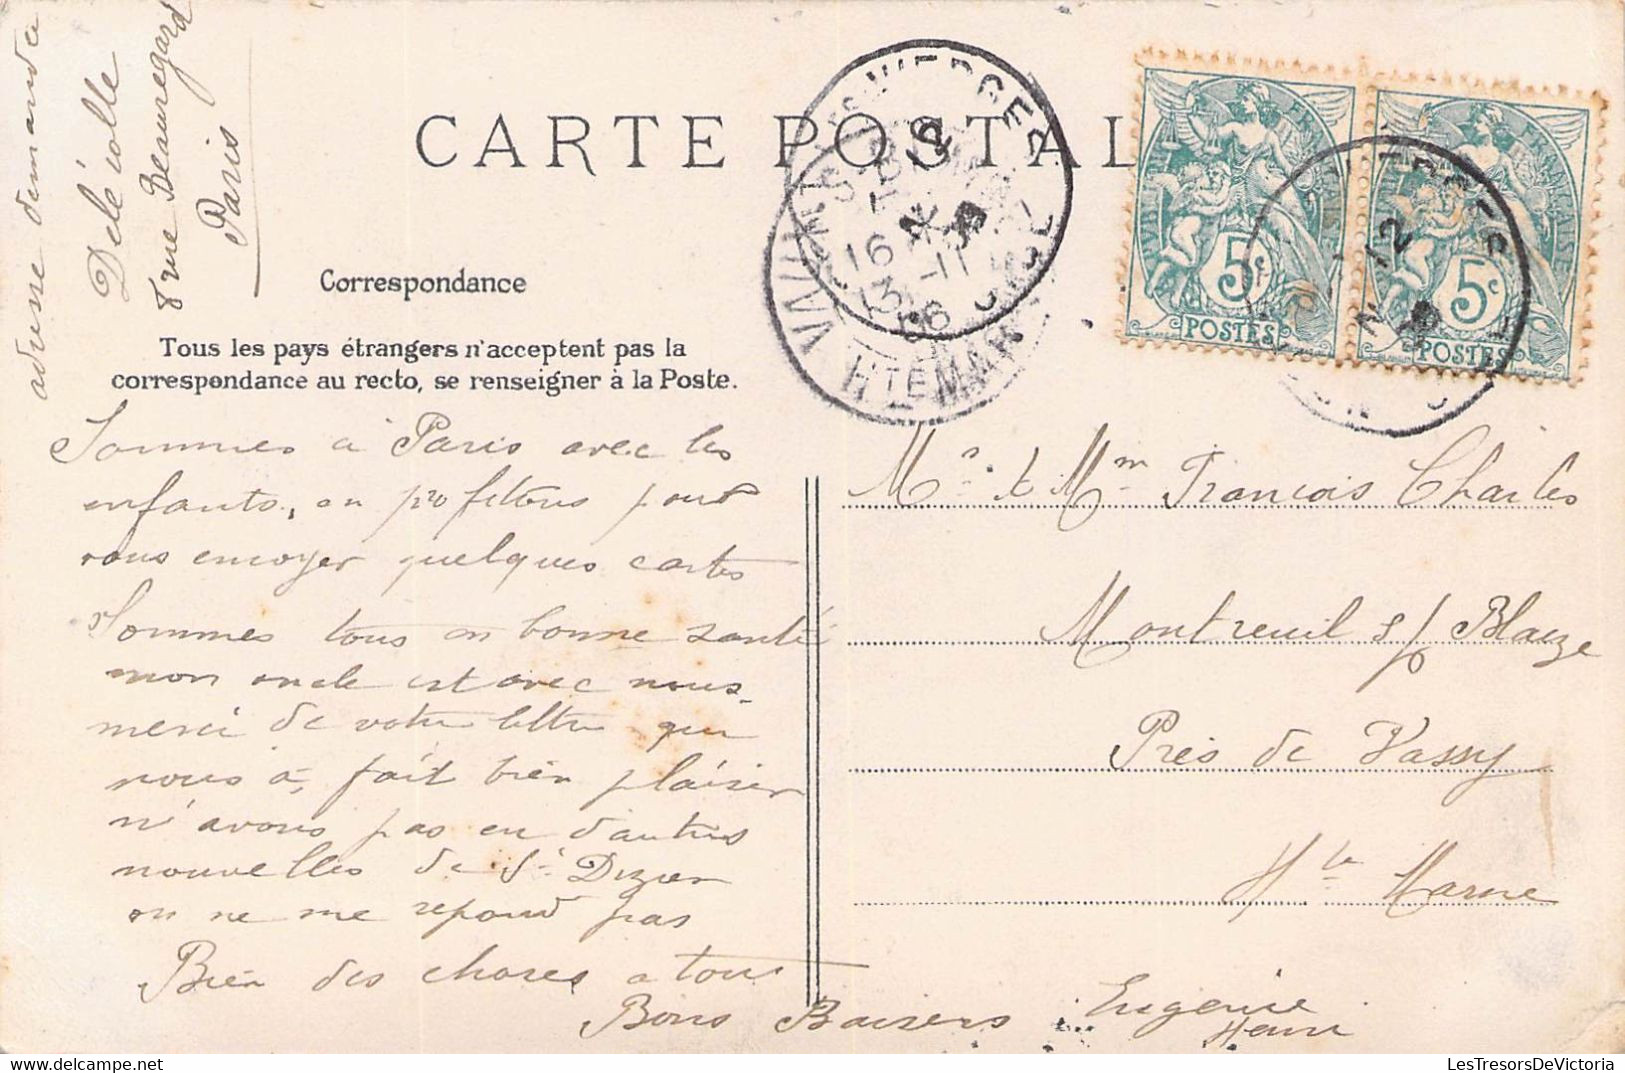 adresse demandée
Délécolle
8 rue Beauregard
Paris
CARTE POSTAL
Correspondance
Tous les pays étrangers n'acceptent pas la
correspondance au recto, se renseigner à la Poste.
Sommes à Paris avec les
enfants, en profitons pour
vous envoyer quelques cartes
Sommes tous en bonne santé
mon oncle est avec nous.
merci de votre lettre qui
nous à, fait bien plaisir
n'avons pas eu d'autres
nouvelles de St Dizier
on ne me repond pas
Bien des choses a tous
Bons Baisers Eugénie
Henri
Mr & Mm François Charles
Montreuil s/ Blaize
Près de Vassy
Hte Marne
16
13 -11
06
HTE MARNE
12
RÉPUBLIQUE FRANÇAISE
5c
POSTES
RÉPUBLIQUE FRANÇAISE
5c
POSTES
12
LesTresorsDeVictoria